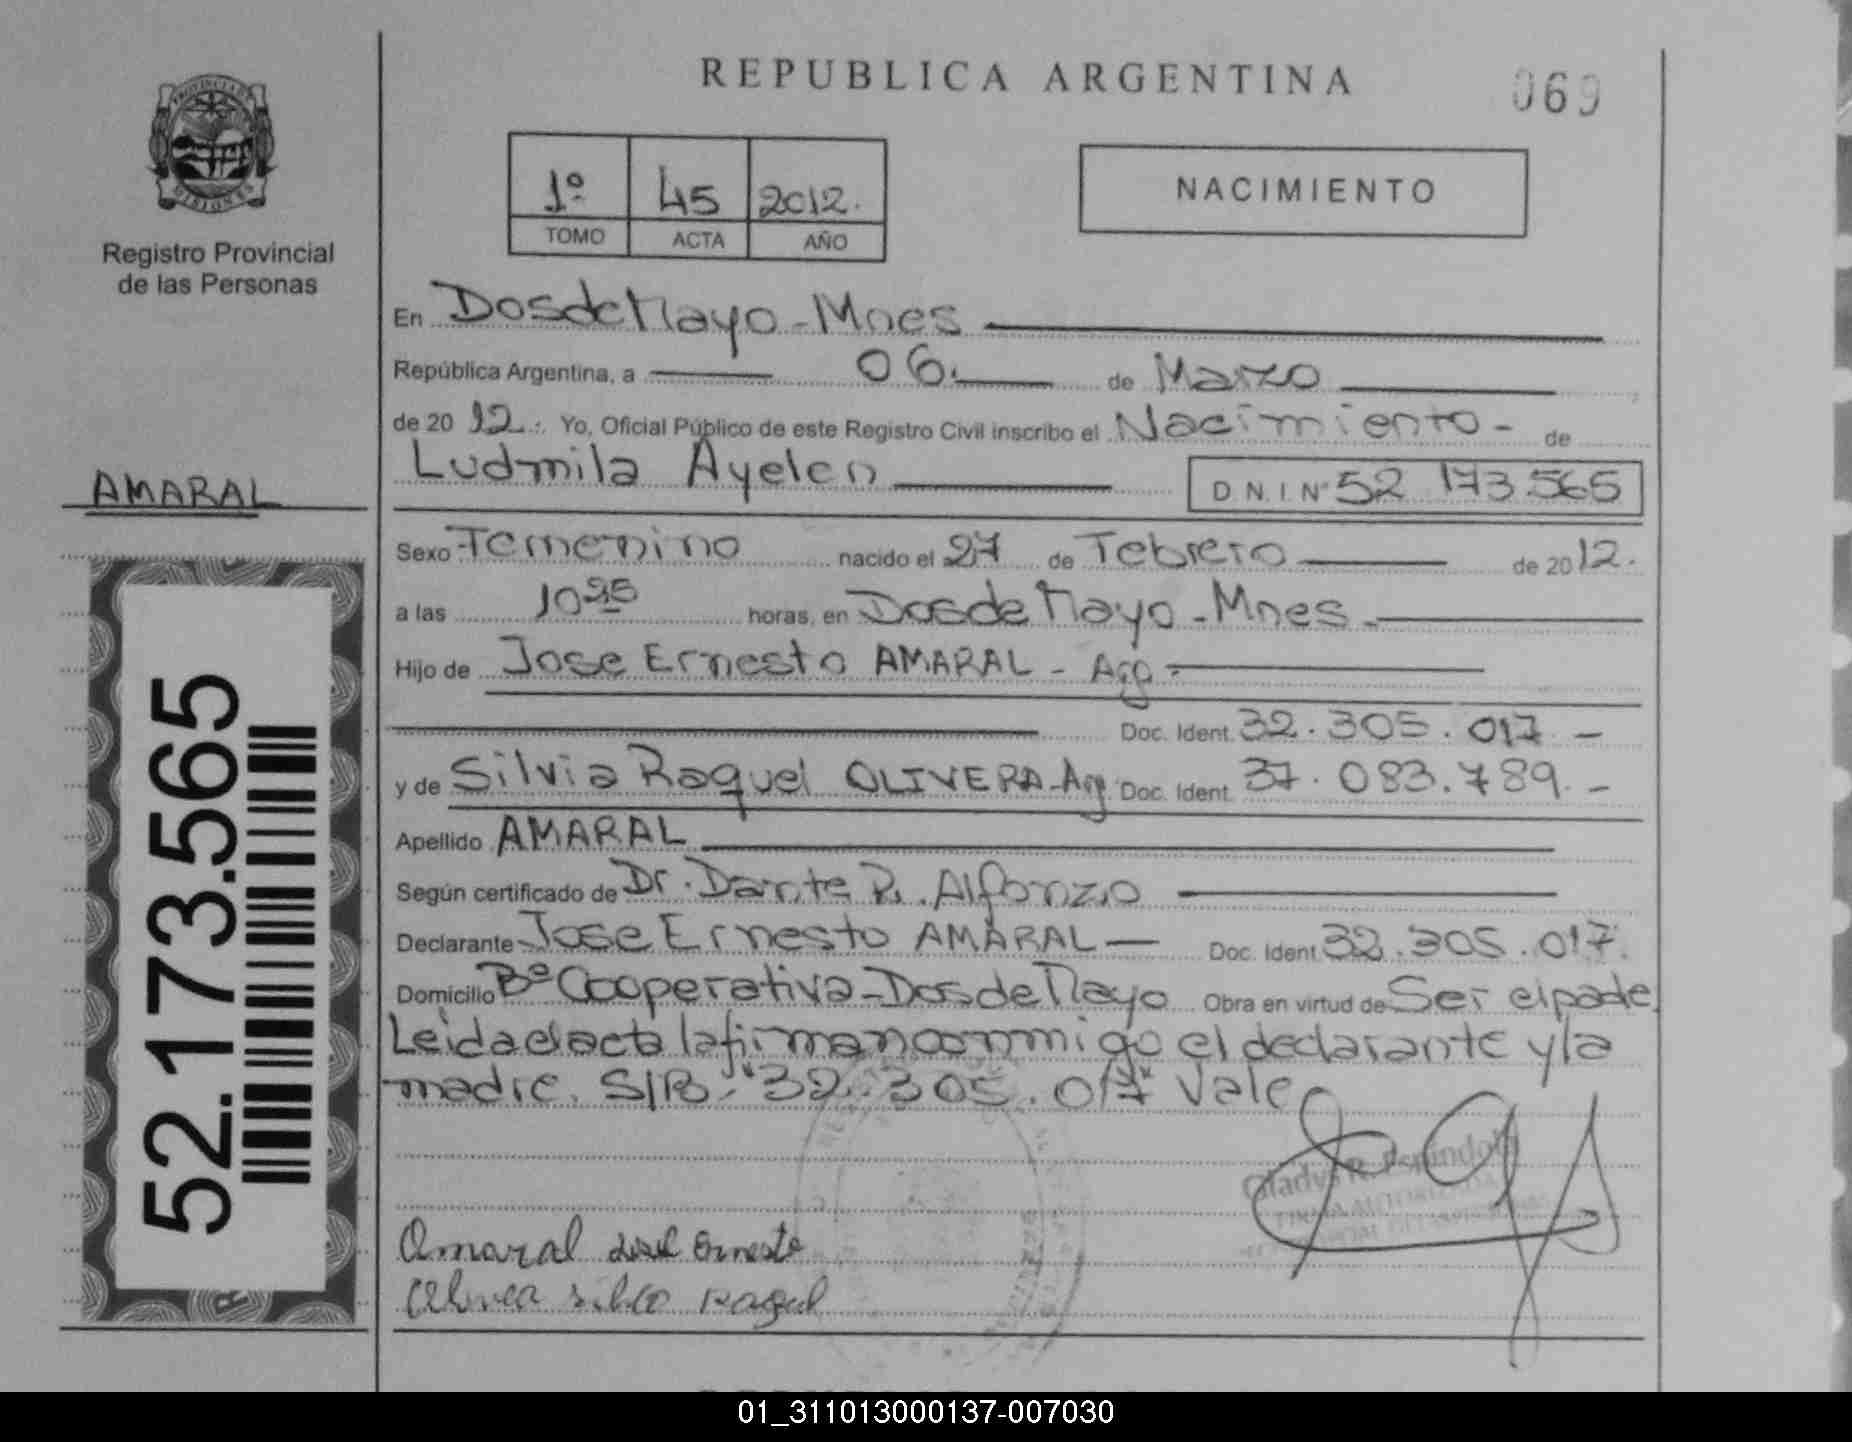 REPUBLICA ARGENTINA
069
PROVINCIA DE
MISIONES
Registro Provincial
de las Personas
1º 45 2012.
TOMO ACTA AÑO
NACIMIENTO
En Dos de Mayo - Mnes
República Argentina, a 06. de Marzo
de 2012. Yo, Oficial Público de este Registro Civil inscribo el Nacimiento - de
Ludmila Ayelen D.N.I. Nº 52 173.565
AMARAL
Sexo Femenino nacido el 27 de Febrero de 2012.
a las horas, en Dos de Mayo - Mnes.
Hijo de Jose Ernesto AMARAL - Arg -
Doc. Ident. 32.305.017 -
y de Silvia Raquel OLIVERA - Arg. Doc. Ident. 37.083.789. -
Apellido AMARAL
Según certificado de Dr. Dante R. Alfonzo
Declarante Jose Ernesto AMARAL — Doc. Ident. 32.305.017.
Domicilio Bº Cooperativa - Dos de Mayo Obra en virtud de Ser el padre.
Leida el acta la firman conmigo el declarante y la
madre. S/B: "32.305.017" Vale
52.173.565
Gladys R. Espindola
FIRMA AUTORIZADA
Amaral José Ernesto
Raquel
01_311013000137-007030